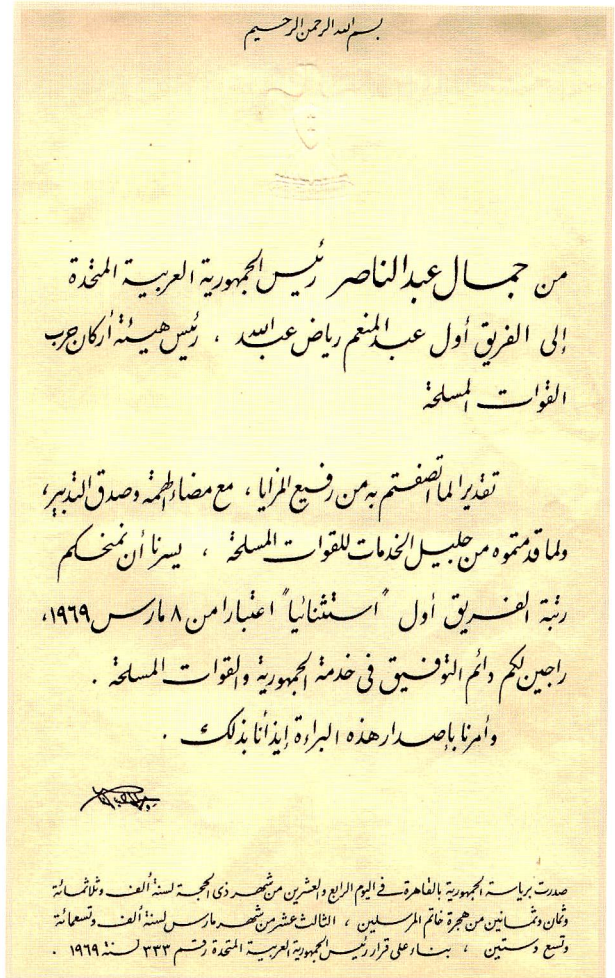 بسم الله الرحمن الرحيم
من جمال عبد الناصر رئيس الجمهورية العربية المتحدة
إلى الفريق أول عبد المنعم رياض عبد الله ، رئيس هيئة أركان حرب
القوات المسلحة
تقديرا لما اتصفتم به من رفيع المزايا ، مع مضاء الهمة وصدق التدبير ،
ولما قدمتموه من جليل الخدمات للقوات المسلحة ، يسرنا أن نمنحكم
رتبة الفريق أول "استثنائيا" اعتبارا من ٨ مارس ١٩٦٩ ،
راجين لكم دائم التوفيق فى خدمة الجمهورية والقوات المسلحة .
وأمرنا بإصدار هذه البراءة إيذانا بذلك .
صدرت برياسة الجمهورية بالقاهرة فى اليوم الرابع والعشرين من شهر ذى الحجة لسنة ألف وثلاثمائة
وثمان وثمانين من هجرة خاتم المرسلين ، الثالث عشر من شهر مارس لسنة ألف وتسعمائة
وتسع وستين ، بناء على قرار رئيس الجمهورية العربية المتحدة رقم ٣٣٣ لسنة ١٩٦٩ .